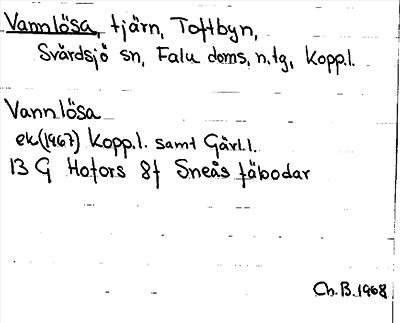 Vannlösa, tjärn, Toftbyn,
Svärdsjö sn, Falu doms, n.tg, Kopp.l.
Vannlösa
ek(1967) Kopp.l. samt Gävl.l.
13 G Hofors 8f Sneås fäbodar
Ch.B.1968